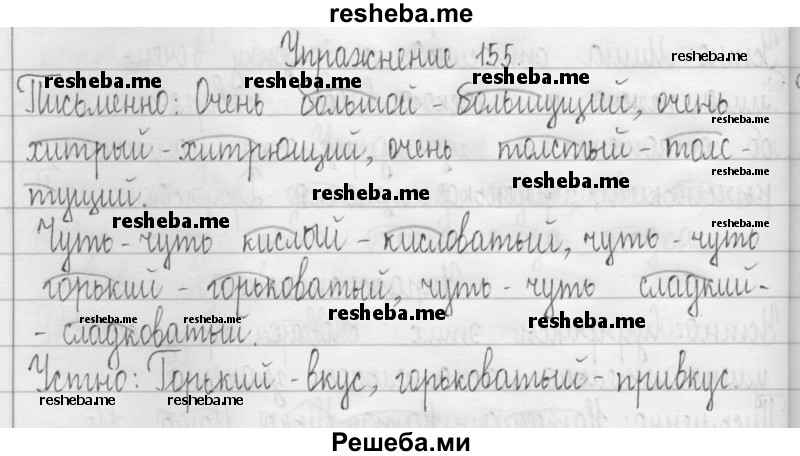 resheba.me
Упражнение 155
resheba.me
resheba.me resheba.me resheba.me
Письменно: Очень большой - большущий, очень
resheba.me
хитрый - хитрющий, очень толстый - толс
resheba.me
тущий.
resheba.me
resheba.me resheba.me
Чуть - чуть кислый - кисловатый, чуть - чуть
горький - горьковатый, чуть - чуть сладкий-
resheba.me resheba.me resheba.me
- сладковатый.
Устно: Горький - вкус, горьковатый - привкус
resheba.me resheba.me
Решеба.ми